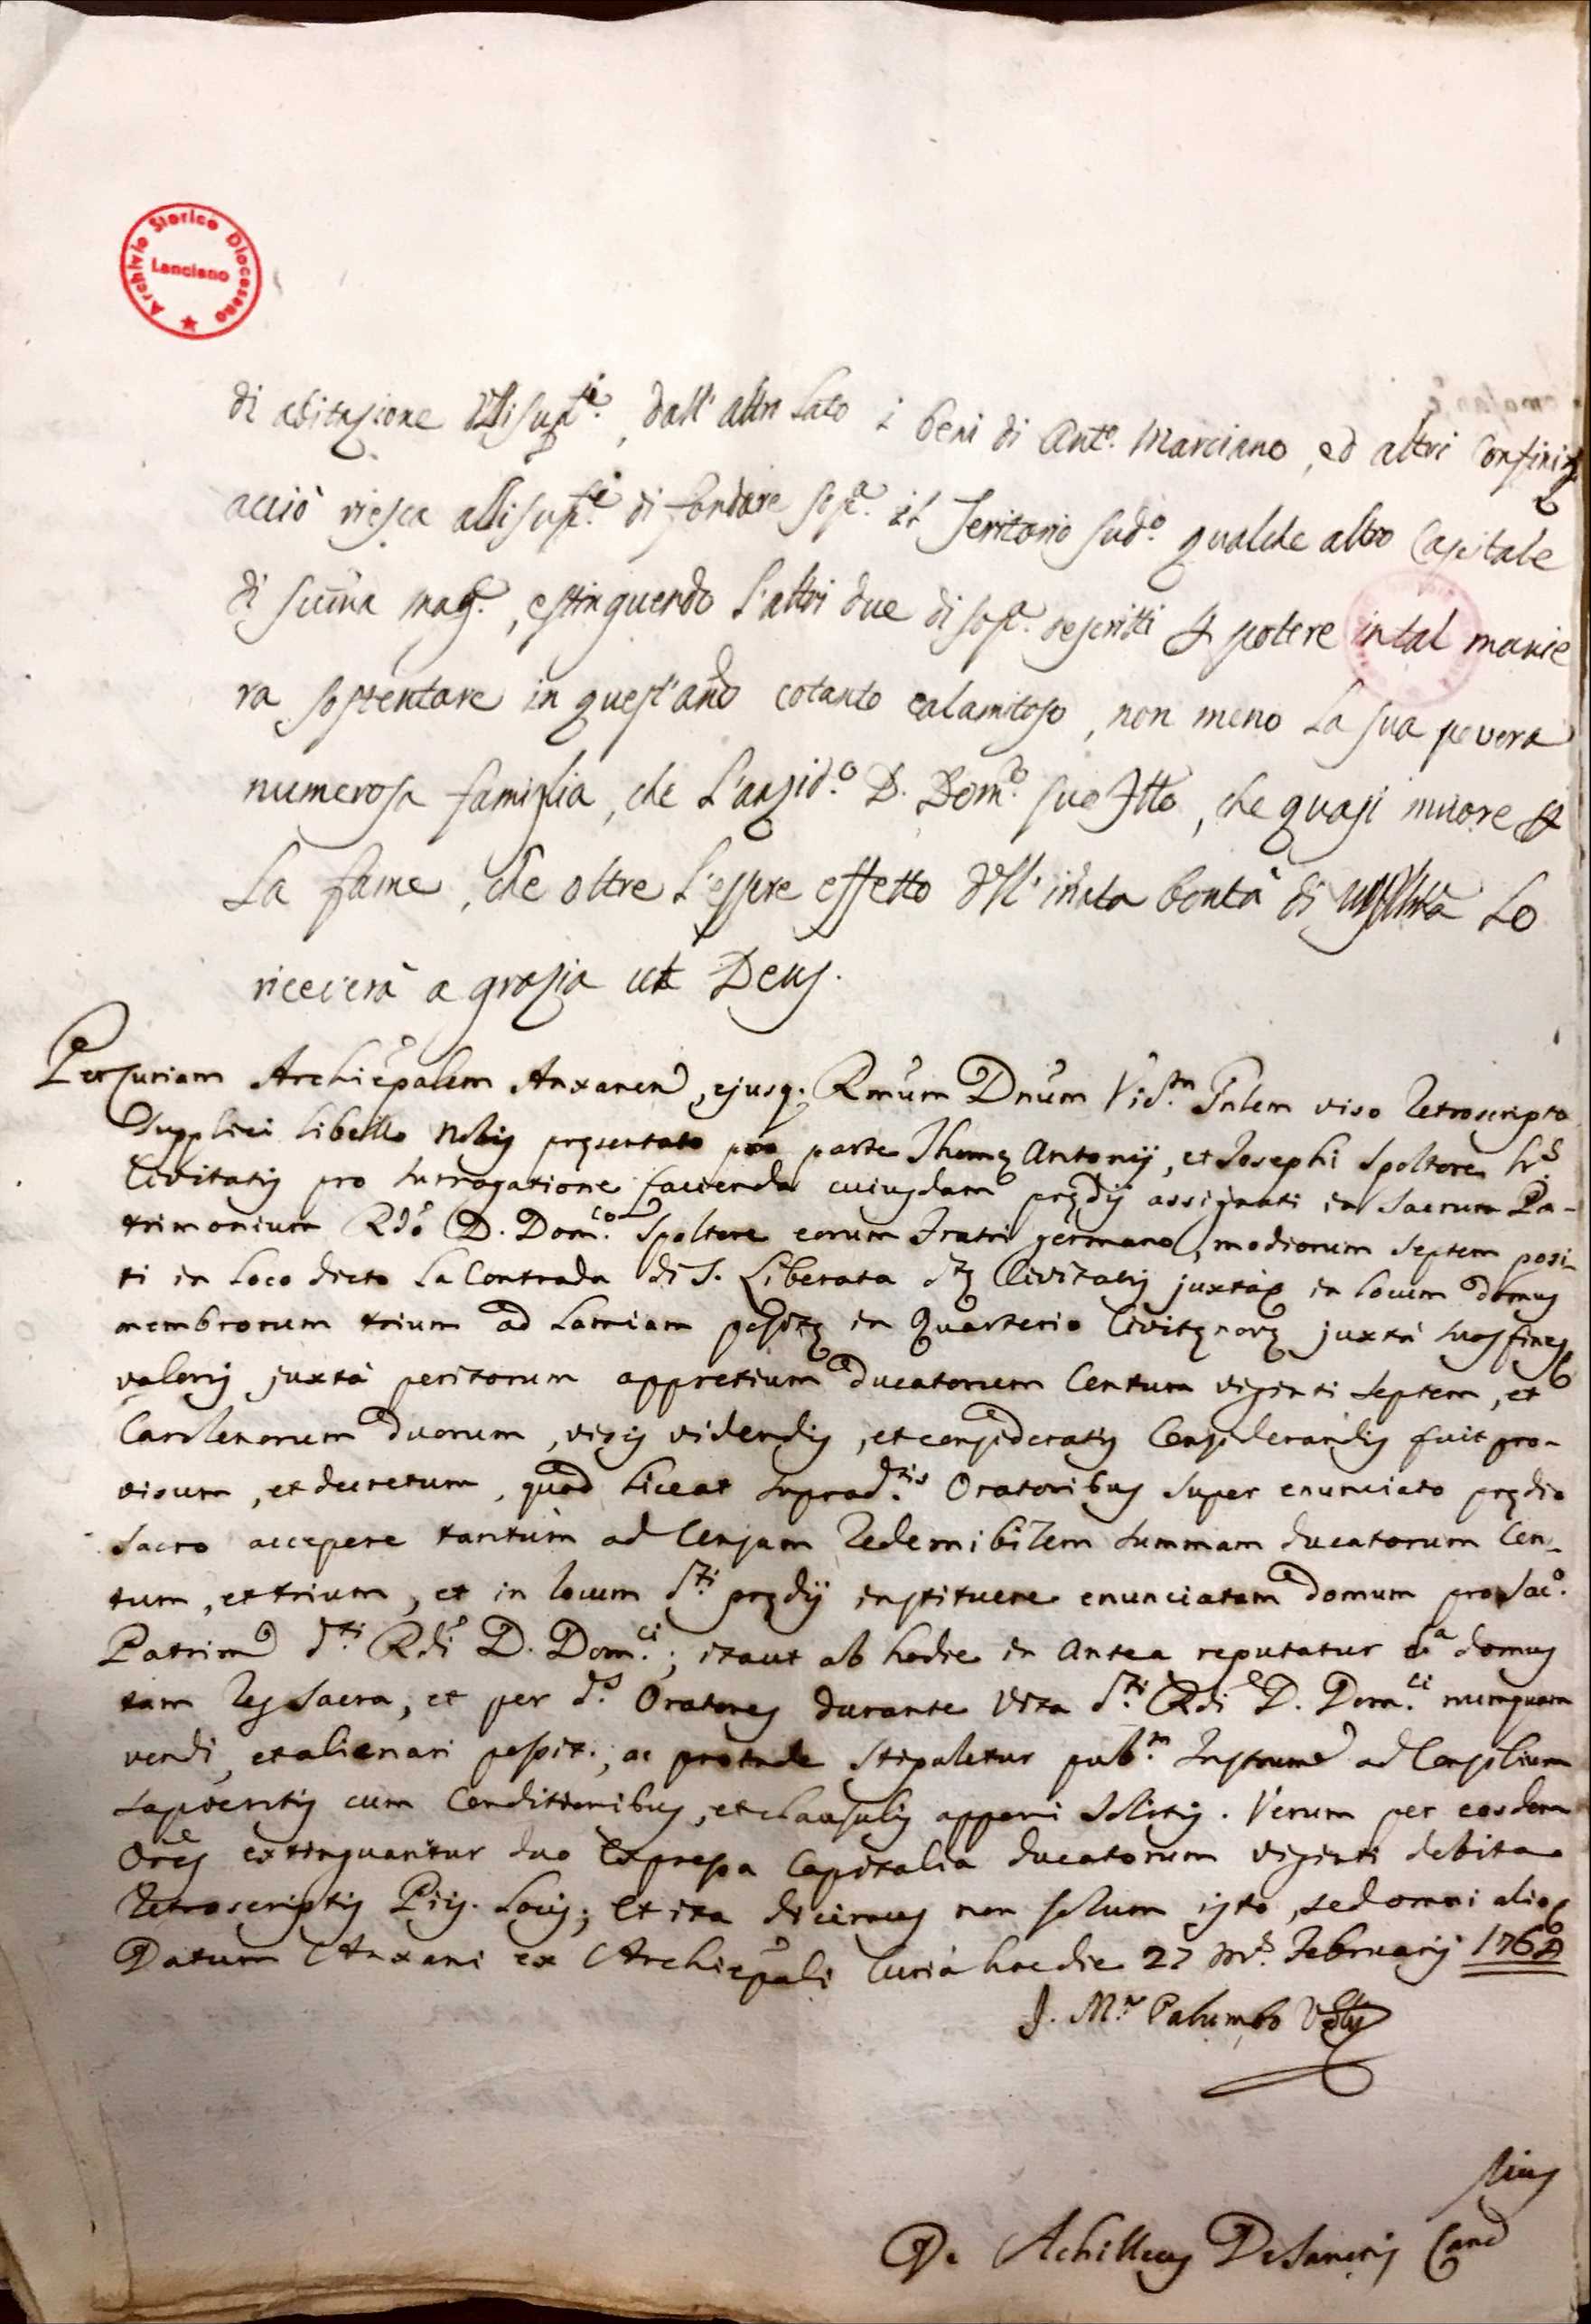 Archivio Storico Diocesano
Lanciano
di abitazione dlli sup.ti, dall'altro lato i beni di Ant.o Marciano, ed altri confini,
acciò riesca alli sup.ti di fondare sop.a il Teritorio sud.o qualche altro Capitale
di sum̄a mag.e, estinguendo l'altri due di sop.a descritti potere in tal manie
ra sostentare in quest'an̄o cotanto calamitoso, non meno la sua povera
numerosa famiglia, che l'anzid.o D. Dom.co suo f̄tto, che quasi muore
la fame, che oltre l'essere effetto dell'in̄ata bontà di lo
riceverà a grazia ut Deus.
Per Curiam Archiēpalem Anxanen, ejusq. Rmūm Dnūm Vis.m viso retroscripto
supplici libello Nobis pręsentato pro parte Thomę Antonij, et Josephi Spoltore h.s
Civitatis pro surrogatione facienda cuiusdam prędij assignati in sacrum Pa-
trimonium Rdō D. Dom.co Spoltore eorum Fratri germano, modiorum septem posi-
ti in loco dicto la Contrada di S. Liberata Civitatis juxtà in locum domus
membrorum trium ad lamiam positę in Quarterio juxtà suos fines
valoris juxtà peritorum appretium ducatorum Centum viginti septem, et
Carolenorum duorum, visis videndis, et consideratis Considerandis fuit pro-
visum, et decretum, quod liceat suprad.tis Oratoribus super enunciato prędio
sacro accepere tantùm ad Censum Redemibilem summam ducatorum Cen-
tum, et trium, et in locum d.ti prędij instituere enunciatam domum pro Sac.o
Patrim d.ti Rdī D. Dom.ci; itaut ab hodie in antea reputatur domus
tam res sacra, et per d.s Oratores durante vita d.ti Rdī D. Dom.ci numquam
vendi, et alienari possit, ac proinde stipuletur pub.m Instrum ad Consilium
sapientis cum Conditionibus, et clausulis apponi solitis. Verum per eosdem
Orēs extinguantur duo expressa Capitalia ducatorum viginti debita
retroscriptis Pijs Locis; et ita dicimus non solum isto, sed omni alio
Datum Anxani ex Archiēpali Curià hac die 27 m.s Februarij 176
J. M.a Palumbo
D. Achilleus De Sanctis Canc